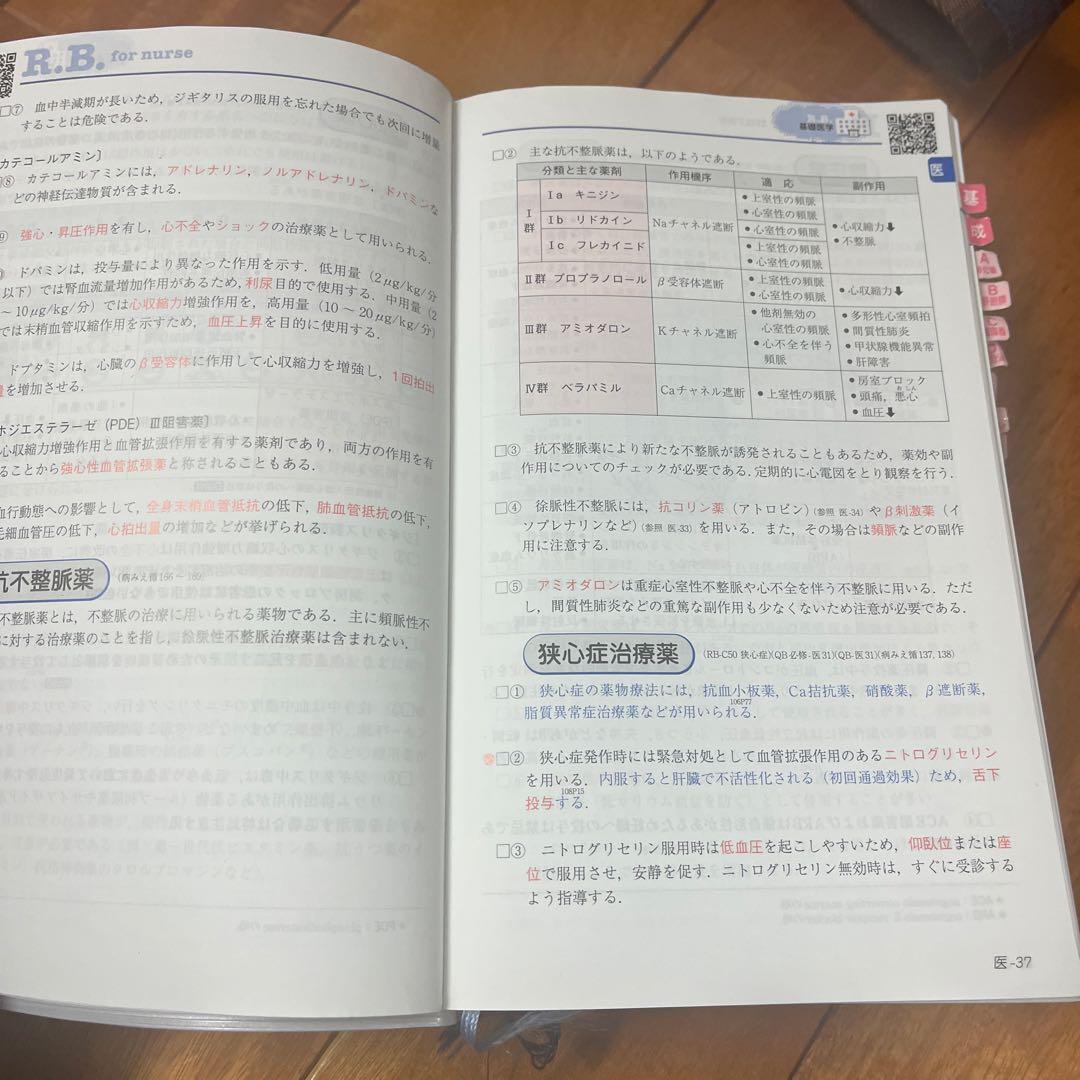 R.B. for nurse
□⑦ 血中半減期が長いため，ジギタリスの服用を忘れた場合でも次回に増量
することは危険である．
カテコールアミン〕
⑧ カテコールアミンには，アドレナリン，ノルアドレナリン，ドパミンな
どの神経伝達物質が含まれる．
⑨ 強心・昇圧作用を有し，心不全やショックの治療薬として用いられる．
ドパミンは，投与量により異なった作用を示す．低用量（2μg/kg/分
以下）では腎血流量増加作用があるため，利尿目的で使用する．中用量（2
～10μg/kg/分）では心収縮力増強作用を，高用量（10～20μg/kg/分）
では末梢血管収縮作用を示すため，血圧上昇を目的に使用する．
ドブタミンは，心臓のβ受容体に作用して心収縮力を増強し，1回拍出
量を増加させる．
ホジエステラーゼ（PDE）Ⅲ阻害薬〕
心収縮力増強作用と血管拡張作用を有する薬剤であり，両方の作用を有
ることから強心性血管拡張薬と称されることもある．
血行動態への影響として，全身末梢血管抵抗の低下，肺血管抵抗の低下，
毛細血管圧の低下，心拍出量の増加などが挙げられる．
抗不整脈薬 (病みえ循166～169)
不整脈薬とは，不整脈の治療に用いられる薬物である．主に頻脈性不
に対する治療薬のことを指し，徐脈性不整脈治療薬は含まれない．
基礎医学
医
基
成
A
B
□② 主な抗不整脈薬は，以下のようである．
分類と主な薬剤 作用機序 適応 副作用
Ⅰ群 Ⅰa キニジン Naチャネル遮断 ●上室性の頻脈 ●心室性の頻脈 ●心収縮力⬇ ●不整脈
Ⅰb リドカイン ●心室性の頻脈
Ⅰc フレカイニド ●上室性の頻脈 ●心室性の頻脈
Ⅱ群 プロプラノロール β受容体遮断 ●上室性の頻脈 ●心室性の頻脈 ●心収縮力⬇
Ⅲ群 アミオダロン Kチャネル遮断 ●他剤無効の心室性の頻脈 ●心不全を伴う頻脈 ●多形性心室頻拍 ●間質性肺炎 ●甲状腺機能異常 ●肝障害
Ⅳ群 ベラパミル Caチャネル遮断 ●上室性の頻脈 ●房室ブロック ●頭痛，悪心 おしん ●血圧⬇
□③ 抗不整脈薬により新たな不整脈が誘発されることもあるため，薬効や副
作用についてのチェックが必要である．定期的に心電図をとり観察を行う．
□④ 徐脈性不整脈には，抗コリン薬（アトロピン）(参照 医-34) やβ刺激薬（イ
ソプレナリンなど）(参照 医-33) を用いる．また，その場合は頻脈などの副作
用に注意する．
□⑤ アミオダロンは重症心室性不整脈や心不全を伴う不整脈に用いる．ただ
し，間質性肺炎などの重篤な副作用も少なくないため注意が必要である．
狭心症治療薬 (RB-C50 狭心症)(QB必修-医31)(QB-医31)(病みえ循137, 138)
□① 狭心症の薬物療法には，抗血小板薬，Ca拮抗薬，硝酸薬，β遮断薬，
脂質異常症治療薬などが用いられる．106P77
□② 狭心症発作時には緊急対処として血管拡張作用のあるニトログリセリン
を用いる．内服すると肝臓で不活性化される（初回通過効果）ため，舌下
投与する．108P15
□③ ニトログリセリン服用時は低血圧を起こしやすいため，仰臥位または座
位で服用させ，安静を促す．ニトログリセリン無効時は，すぐに受診する
よう指導する．
医-37